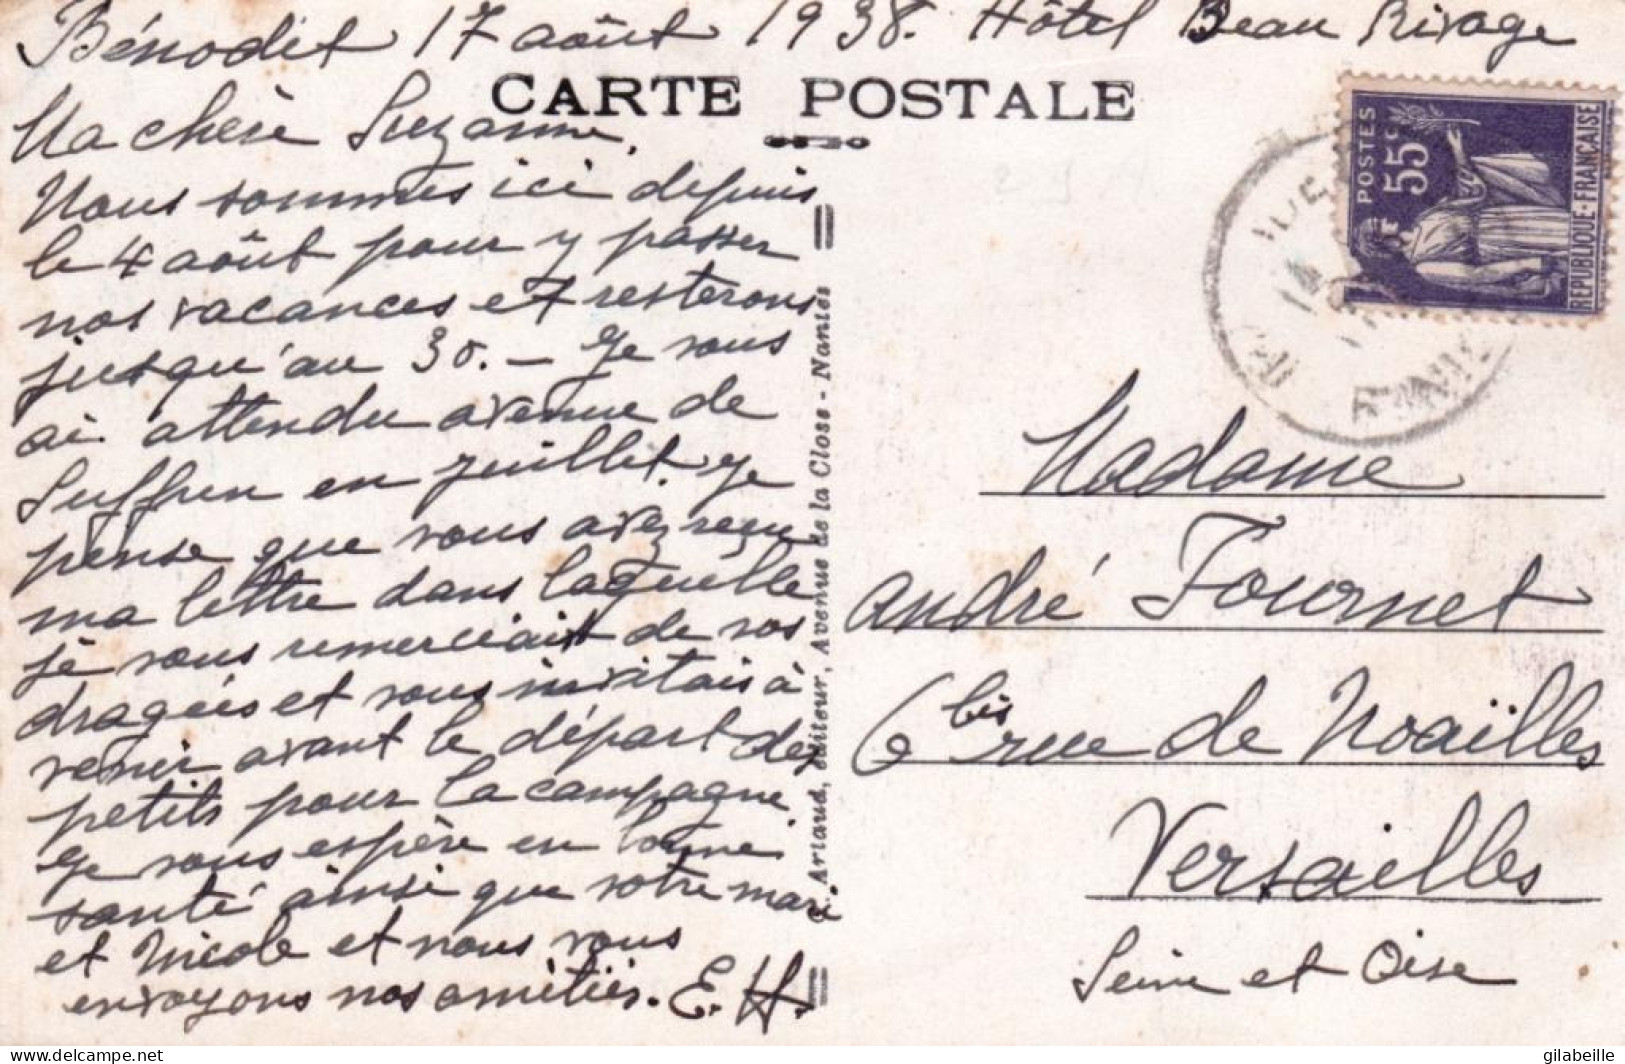 Bénodet 17 août 1938. Hôtel Beau Rivage
CARTE POSTALE
Ma chère Suzanne,
Nous sommes ici depuis
le 4 août pour y passer
nos vacances et resterons
jusqu'au 30. – Je vous
ai attendu avenue de
Suffren en juillet. Je
pense que vous avez reçu
ma lettre dans laquelle
je vous remerciais de vos
dragées et vous invitais à
venir avant le départ des
petits pour la campagne.
Je vous espère en bonne
santé ainsi que votre mari
et Nicole et nous vous
envoyons nos amitiés. E. H.
Artaud, éditeur, Avenue de la Close - Nantes
POSTES
55c
REPUBLIQUE-FRANÇAISE
Madame
André Fournet
6 bis rue de Noailles
Versailles
Seine et Oise
https://www.delcampe.net
gilabeille